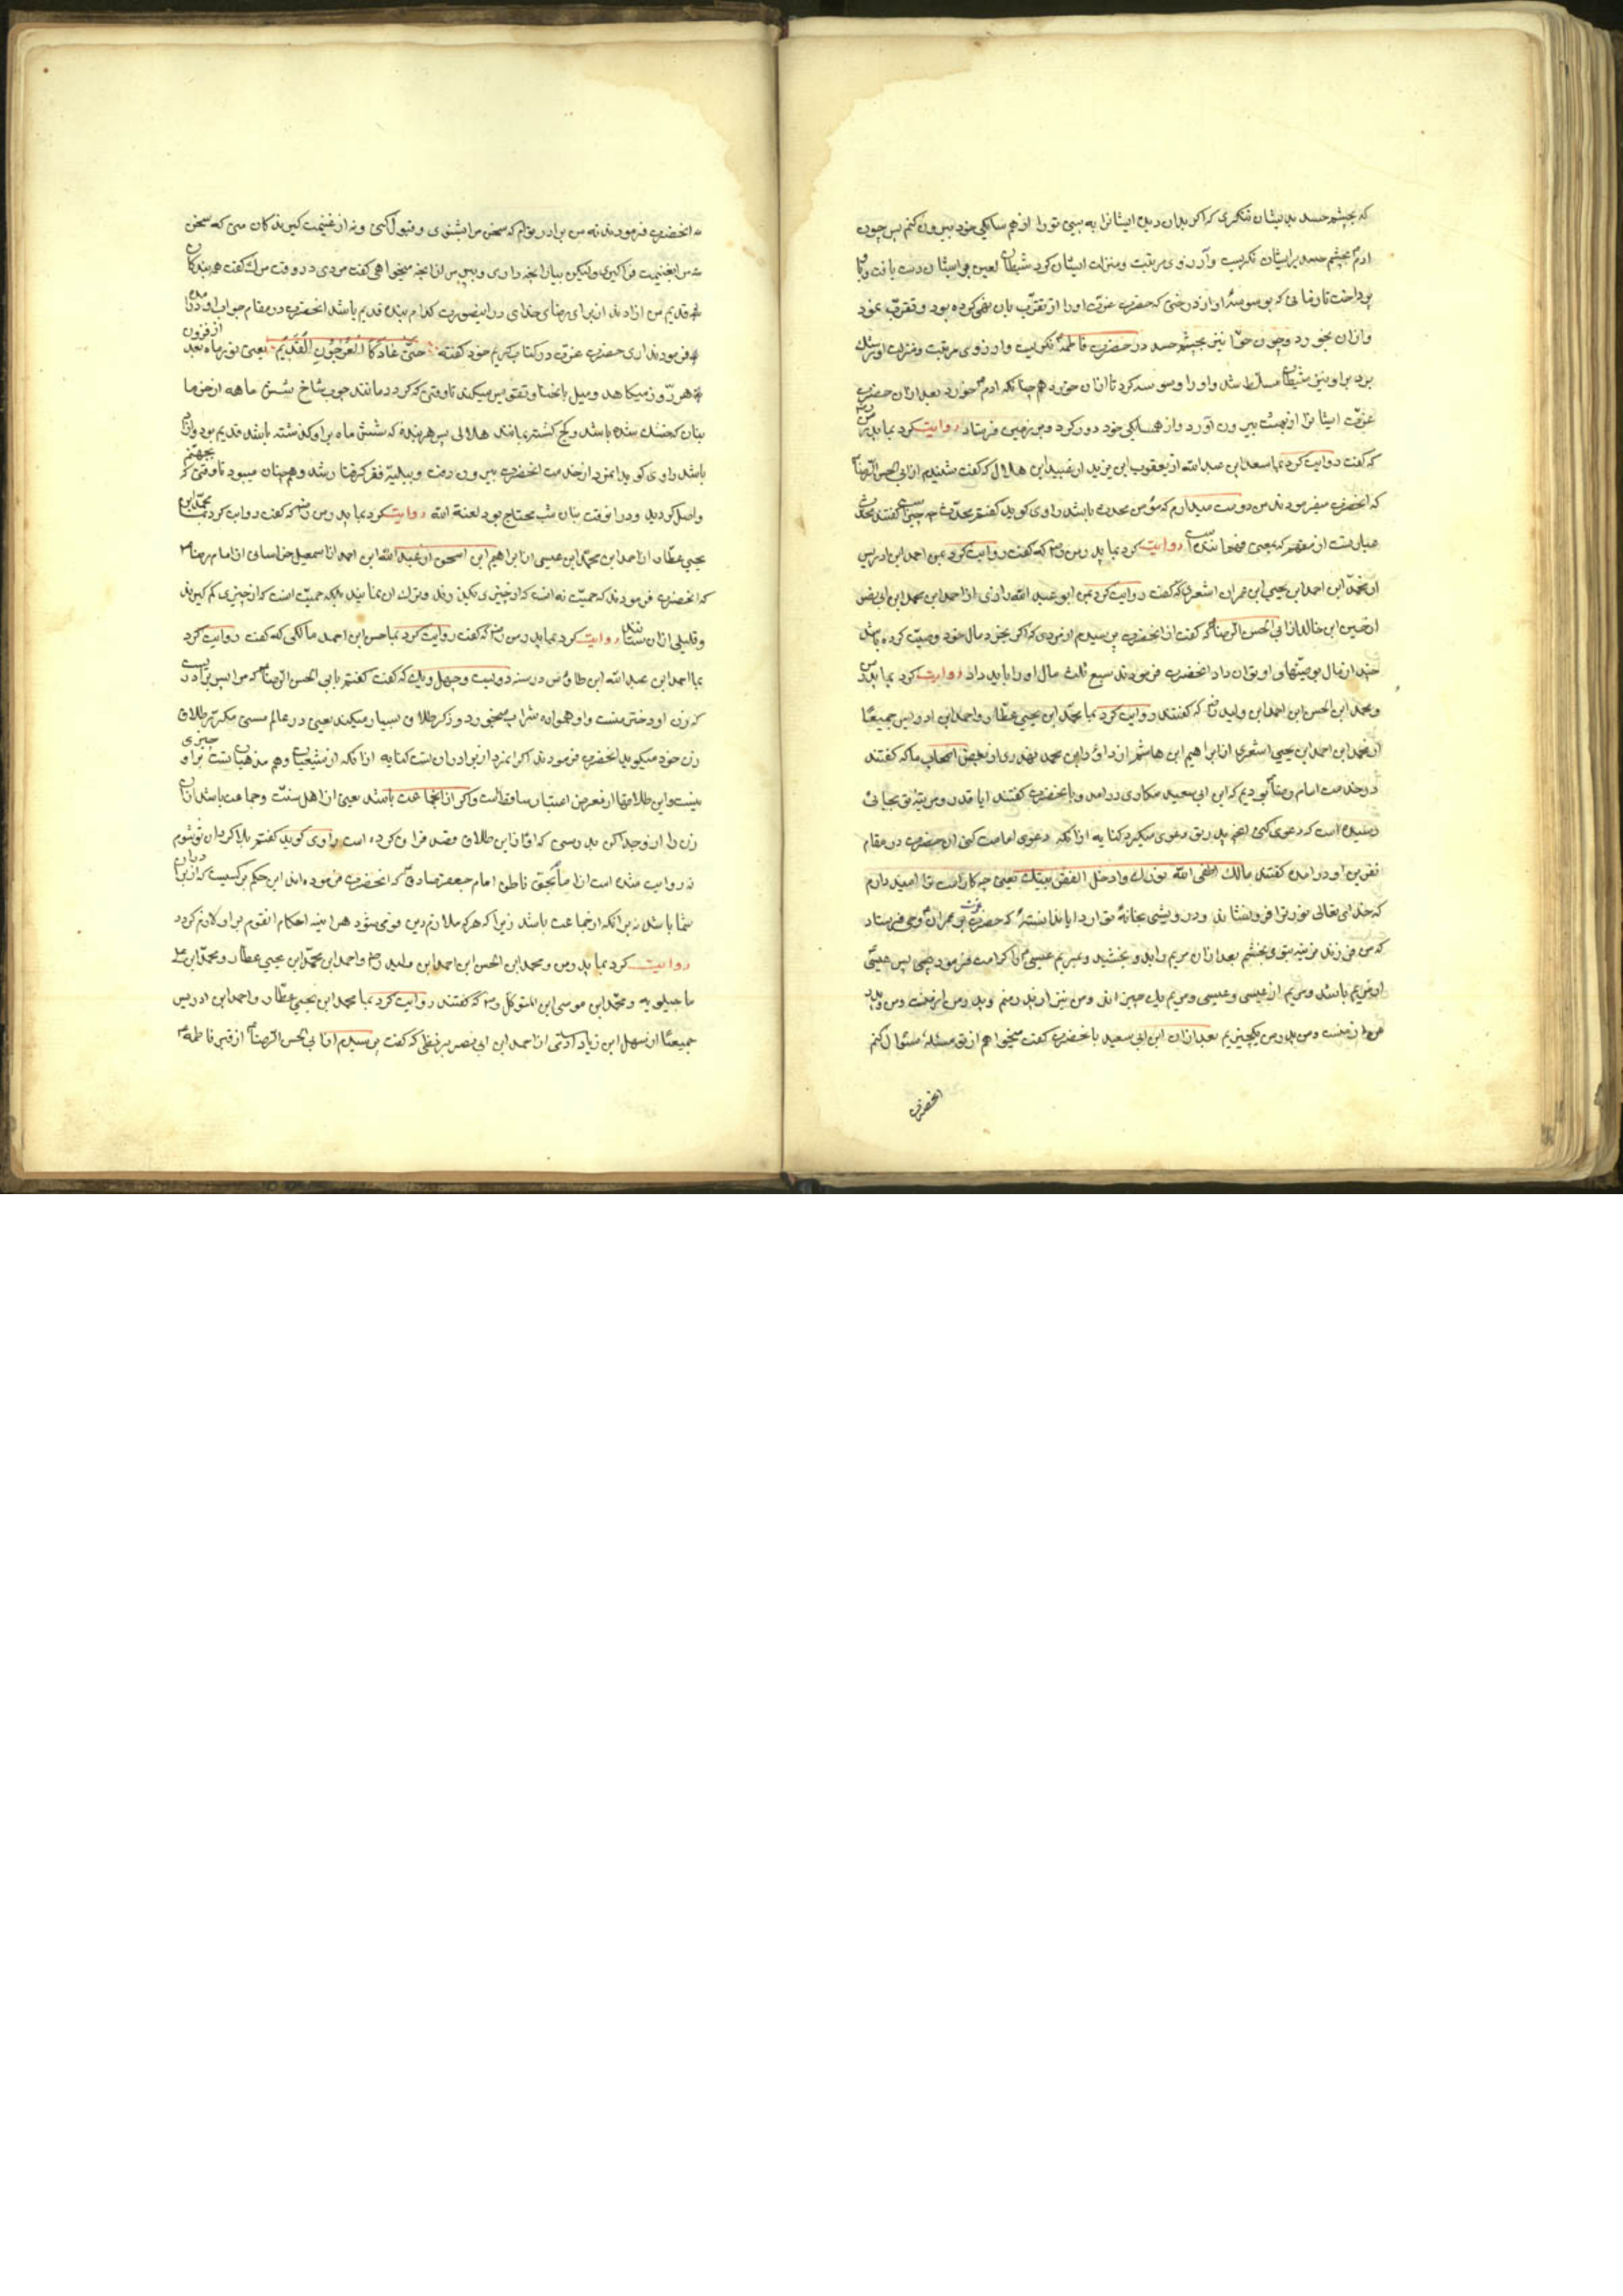 که بچشم حسد بدیشان ننگری که اگر بدان دیده ایشانرا به بینی تو را از همسایکی خود بیرون کنم پس چون
ادم بچشم حسد بر ایشان نکریست و آرزوی مرتبت و منزلت ایشان کرد شیطان لعین بر ایشان دست یافت و با
پرداخت تا وقتا که بوسوسهٔ او از درختی که حضرت عزت او را از تقرب بان نهی کرده بود و تقرب نمود
و ازان بخورد و چون حوا نیز بچشم حسد در حضرت فاطمه نکریست و ارزوی مرتبت و منزلت او
برد بر او نیز شیطان مسلط شد و او را وسوسه کرد تا ازان خورد همچنانکه ادم خورد بعد ازان حضرت
عزت ایشانرا از بهشت بیرون آورد و از همسایکی خود دور کرد و بر زمین فرستاد روایت کرد بما پدرم
که گفت روایت کرد بما سعد ابن عبد الله از یعقوب ابن یزید از عبید ابن هلال که گفت شنیدم از ابی الحسن الرضا
که انحضرت میفرمودند من دوست میدارم که مؤمن محدث باشد راوی کوید گفتم محدث چه چیز است گفتند محدث
عبارتست از مفهم که یعنی فهمانیده روایت کرد بما پدرم رض که گفت روایت کرد بمن احمد ابن ادریس
از محمد ابن احمد ابن یحیی ابن عمران اشعری که گفت روایت کرد بمن ابو عبد الله رازی از احمد ابن محمد ابن ابی نصر
از حسین ابن خالد از ابی الحسن الرضا که گفت از انحضرت پرسیدم از مردی که اگر بجزء مال خود وصیت کرده باشد
چند از مال بوصیتهای او توان داد انحضرت فرمودند سبع ثلث مال او را باید داد روایت کرد بما پدرم
و محمد ابن الحسن ابن احمد ابن ولید رض که گفتند روایت کرد بما محمد ابن یحیی عطار و احمد ابن ادریس جمیعًا
از محمد ابن احمد ابن یحیی اشعری از ابراهیم ابن هاشم از داود ابن محمد نهدی از بعض اصحاب ما که گفتند
در خدمت امام رضا بودیم که ابن ابی سعید مکاری درامد و بانحضرت گفتند ایا قدر و مرتبه تو بجائی
رسیده است که دعوی کنی انچه پدر تو دعوی میکرد کنایه از انکه دعوی امامت کنی ان حضرت در مقام
نفرین او درامده گفتند مالک اطفی الله نورک و ادخل الفقر بیتک یعنی چه کار است ترا امید دارم
که خدای تعالی نور ترا فرو نشاند و درویشی بخانهٔ تو ارد ایا ندانستهٔ که حضرت عزت بعمران وحی فرستاد
که من فرزند نرینه بتو می بخشم بعد ازان مریم را بدو بخشید و بمریم عیسی را کرامت فرمود پس عیسی
از مریم باشد و مریم از عیسی و عیسی و مریم یک چیز اند و من نیز از پدرمم و پدرم از منست و من و پدرم
هر دو از منست و من پدرم یکچیزیم بعد ازان ابن ابی سعید بانحضرت گفت میخواهم از تو مسئلهٔ سئوال کنم
انحضرت
انحضرت فرمودند نه من برادر توام که سخن مرا بشنوی و قبول کنی و نه از غنیمت کیرندکان منی که سخن
مرا بغنیمت فرا کیری ولیکن بیار انچه داری و بپرس از انچه میخواهی گفت مردی در وقت مرک گفت هر بندکان
قدیم من ازادند از برای رضای خدای در اینصورت کدام بنده قدیم باشد انحضرت در مقام جواب او درامده
فرمودند اری حضرت عزت در کتاب کریم خود گفته حَتّی عَادَ کَالْعُرْجُونِ الْقَدِیْم یعنی نور ماه بعد از فزون
هر روز میکاهد و میل بانحنا و تقوس میکند تا وقتی که کردد مانند چوب شاخ شش ماهه از خرما
بنان که خشک شده باشد و کج کشته بمانند هلالی پس هر بنده که شش ماه بر او کذشته باشد قدیم بود و ازاد
باشد راوی کوید انمرد از خدمت انحضرت بیرون رفت و ببلیهٔ فقر کرفتار شد و همچنان میبود تا وقتی که بجهنم
واصل کردید و در انوقت بنان شب محتاج بود لعنة الله روایت کرد بما پدرم رض که گفت روایت کرد بما محمد ابن
یحیی عطار از احمد ابن محمد ابن عیسی از ابراهیم ابن اسحق از عبد الله ابن احمد از اسمعیل خراسانی از امام رضا
که انحضرت فرمودند که حمیت نه انست که از چیزی بکیرند و ترک ان نمایند بلکه حمیت انست که از چیزی کم کیرند
و قلیلی ازان ستانند روایت کرد بما پدرم رض که گفت روایت کرد بما حسن ابن احمد مالکی که گفت روایت کرد
بما احمد ابن عبد الله ابن طاوس در سنه دویست و چهل و یک که گفت گفتم بابی الحسن الرضا که مرا پسر برادریست
که زن او دختر منست و او همواره شراب میخورد و ذکر طلاق بسیار میکند یعنی در عالم مستی مکرر طلاق
زن خود میکوید انحضرت فرمودند اکر انمرد از برادران تست کنایه از انکه از شیعیان و هم مذهبانست بر او چیزی
نیست و این طلاقها از معرض اعتبار ساقط است و اکر از انجماعت باشد یعنی از اهل سنت و جماعت باشد ان
زن را از وجدا کن بدرستی که او از این طلاق قصد فراق کرده است راوی کوید گفتم بلا کردان تو شوم
نه روایت شده است از امام بحق ناطق امام جعفر صادق که انحضرت فرموده اند این حکم بر کسیست که از برادران
شما باشد نه برانکه ازجماعت باشد زیرا که هر که ملازم دین قومی شود هر اینه احکام انقوم بر او لازم کردد
روایت کرد بما پدرم و محمد ابن الحسن ابن احمد ابن ولید رض و احمد ابن محمد ابن یحیی عطار و محمد ابن علی
ماجیلویه و محمد ابن موسی ابن المتوکل رض که گفتند روایت کرد بما محمد ابن یحیی عطار و احمد ابن ادریس
جمیعًا از سهل ابن زیاد ادمی از احمد ابن ابی نصر بزنطی که گفت پرسیدم از ابی الحسن الرضا از قبر فاطمه